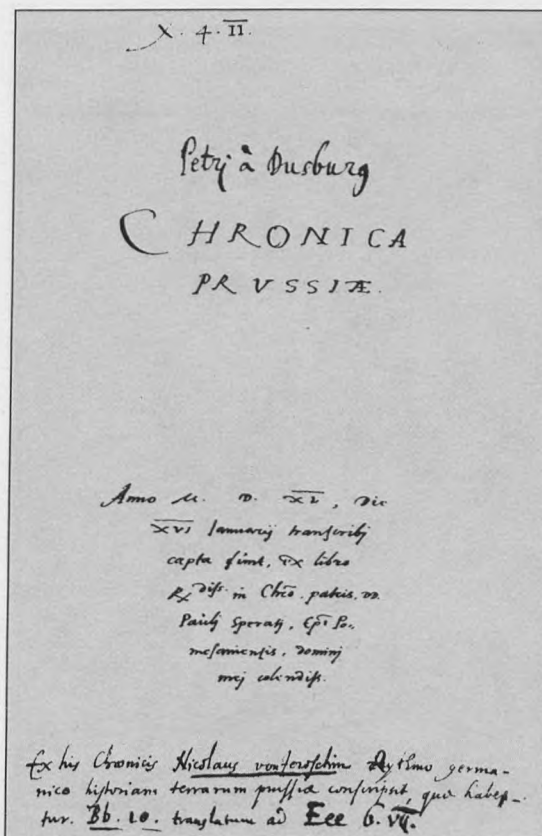 X. 4. II.
Petrj à Dusburg
CHRONICA
PRVSSIÆ.
Anno M. D. XL, Die
XVI Ianuarij transcribj
capta sunt, Ex libro
Rdiss. in Chro. patris. DD.
Paulj Speratj, Epi Po-
mesaniensis, dominj
mej colendiss.
Ex his Chronicis Nicolaus von Jeroschin Rythmo germa-
nico historiam terrarum prussiæ conscripsit, quæ habe-
tur. Bb. 10. translatum ad Eee 6. VII.